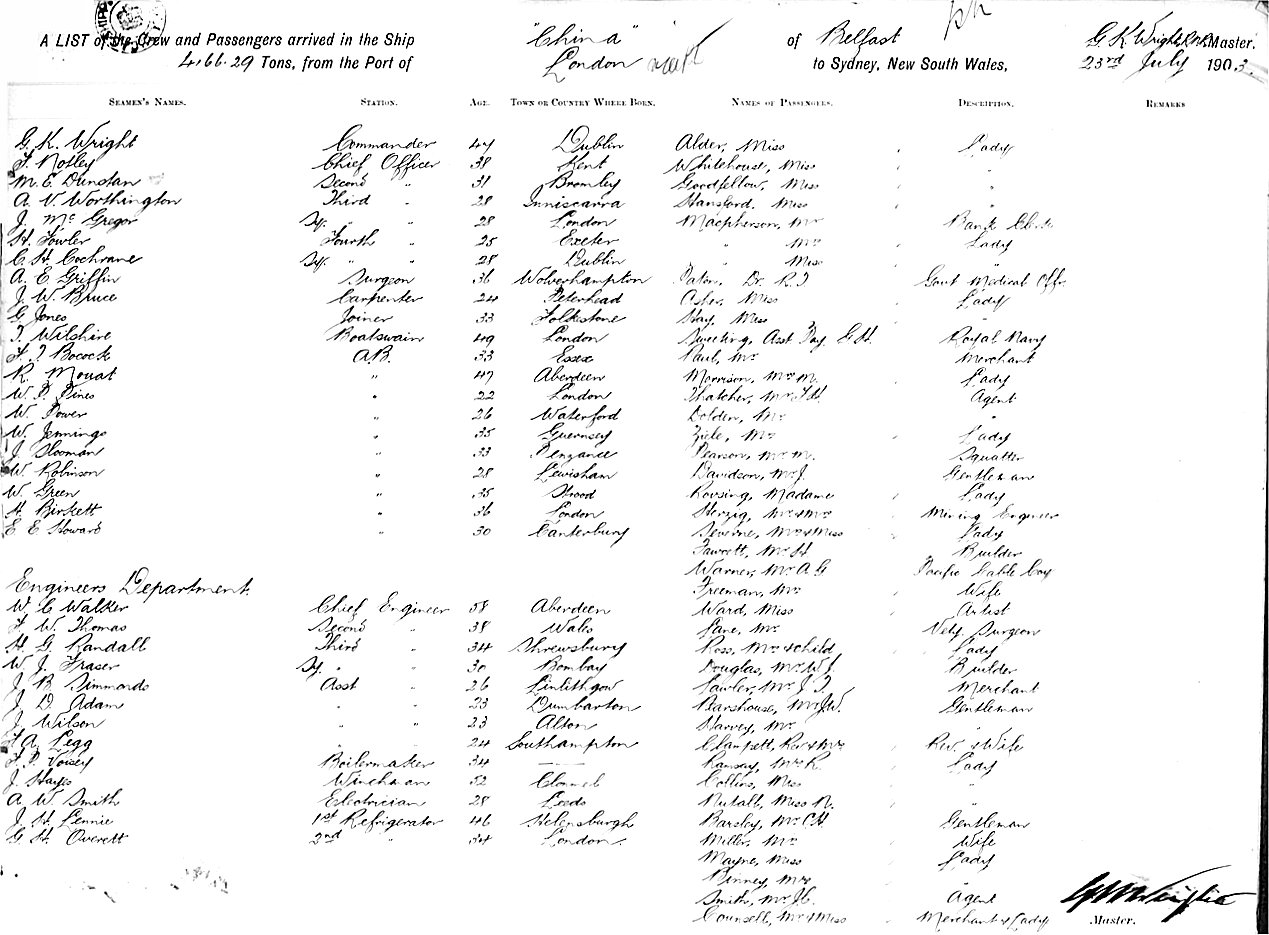 A LIST of the Crew and Passengers arrived in the Ship "China" of Belfast G. K. Wright, Master.
4,166.29 Tons, from the Port of London to Sydney, New South Wales, 23rd July 1903.
SEAMEN'S NAMES. STATION. AGE. TOWN OR COUNTRY WHERE BORN. NAMES OF PASSENGERS. DESCRIPTION. REMARKS
G. K. Wright Commander 47 Dublin Alder, Miss Lady
F. Notley Chief Officer 38 Kent Whitehouse, Miss "
M. E. Dunstan Second " 31 Bromley Goodfellow, Miss "
A. V. Worthington Third " 28 Inniscarra Stansford, Miss "
J. McGregor " " 28 London Macpherson, Mr Bank
H. Fowler Fourth " 25 Exeter " Mrs Lady
C. H. Cochrane " " 28 Dublin " Miss "
A. E. Griffin Surgeon 36 Wolverhampton Paton, Dr. R. T Govt Medical Offr.
J. W. Bruce Carpenter 24 Peterhead Asher, Miss Lady
G. Jones Joiner 33 Folkestone Hay, Miss "
T. Wilshire Boatswain 49 London Sweeting, Asst Pay G. H. Royal Navy
F. J. Bocock A.B. 33 Essex Paul, Mr Merchant
R. Mouat " 47 Aberdeen Morrison, Mrs M. Lady
W. P. Pines " 22 London Thatcher, Mr F. H. Agent
W. Power " 26 Waterford Dolden, Mr "
W. Jennings " 35 Guernsey Ziele, Mrs Lady
J. Slooman " 33 Penzance Pearson, Mr M. Squatter
W. Robinson " 28 Lewisham Davidson, Mr J. Gentleman
W. Green " 35 Strood Rovsing, Madame Lady
H. Birkett " 36 London Herzig, Mr & Mrs Mining Engineer
E. E Howard " 30 Canterbury Severne, Mrs & Miss Lady
Fawcett, Mr H Builder
Warner, Mr A G Pacific Cable Coy
Engineers Department. Freeman, Mrs Wife
W. C Walker Chief Engineer 58 Aberdeen Ward, Miss Artist
F. W. Thomas Second " 38 Wales Lane, Mr Vety. Surgeon
H. G. Randall Third " 34 Shrewsbury Ross, Mrs & child Lady
W. J. Fraser " 30 Bombay Douglas, Mr W. J. Builder
J. B. Simmonds Asst " 26 Linlithgow Lawler, Mr J. T. Merchant
J. D. Adam " " 23 Dumbarton Pearshouse, Mr J. W. Gentleman
J. Wilson " " 23 Alton Harvey, Mr "
F. A. Legg " " 24 Southampton Clampett, Rev & Mrs Rev. & Wife
F. P. Voisey Boilermaker 34 Ramsay, Mrs R. Lady
J. Hayes Winchman 52 Clonmel Collins, Miss "
A. W. Smith Electrician 28 Leeds Nutall, Miss N. "
J. H. Lennie 1st Refrigerator 46 Helensburgh Barsley, Mr C. H. Gentleman
G. H. Overett 2nd " 34 London Miller, Mrs Wife
Mayne, Miss Lady
Binney, Mrs "
Smith, Mr J. C. Agent
Counsell, Mr & Miss Merchant & Lady
Master.